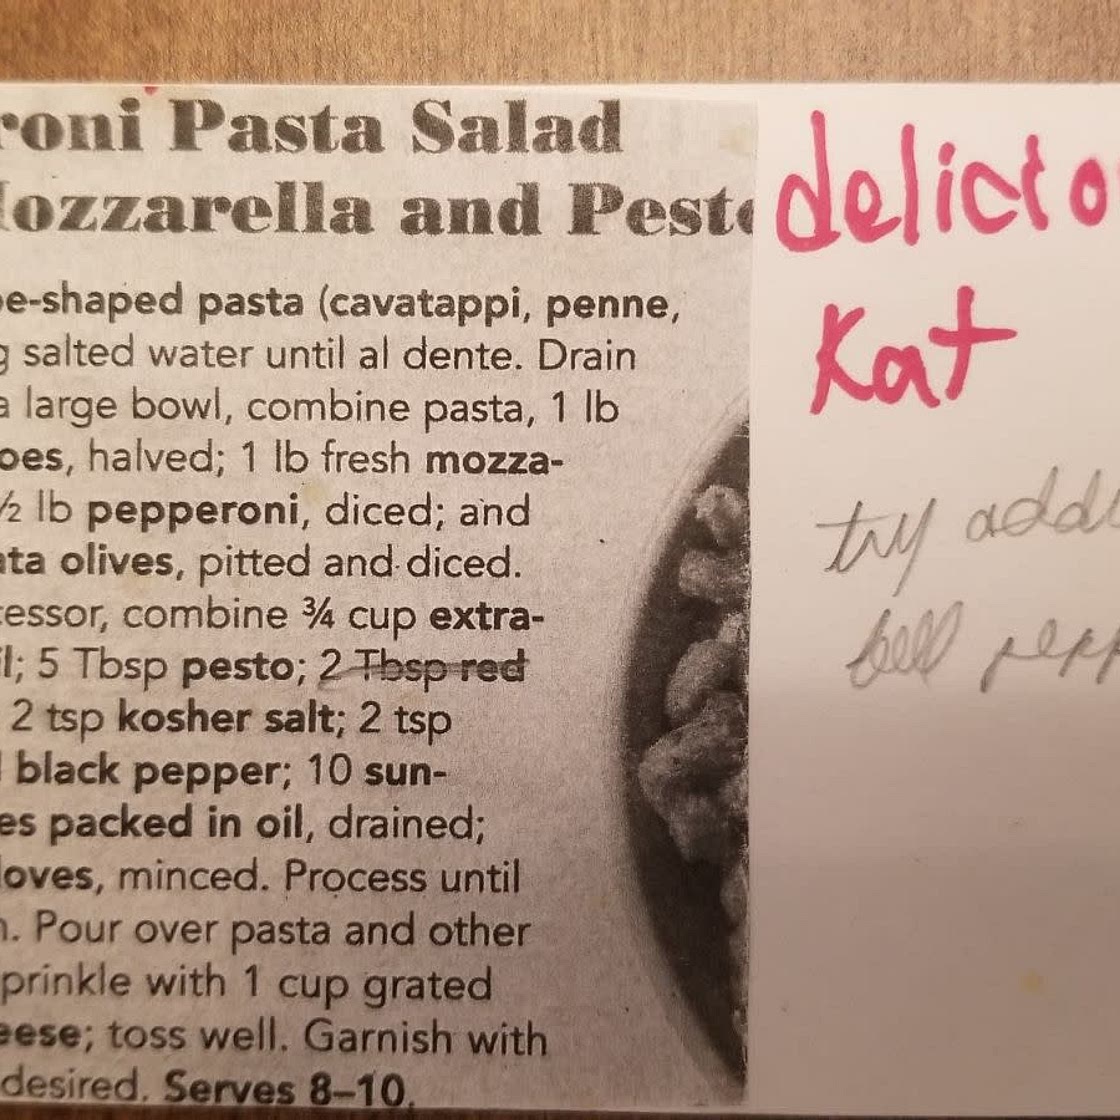 roni Pasta Salad
ozzarella and Pesto
e-shaped pasta (cavatappi, penne,
g salted water until al dente. Drain
a large bowl, combine pasta, 1 lb
oes, halved; 1 lb fresh mozza-
½ lb pepperoni, diced; and
ata olives, pitted and diced.
cessor, combine ¾ cup extra-
il; 5 Tbsp pesto; 2 Tbsp red
2 tsp kosher salt; 2 tsp
black pepper; 10 sun-
es packed in oil, drained;
loves, minced. Process until
n. Pour over pasta and other
prinkle with 1 cup grated
eese; toss well. Garnish with
desired. Serves 8–10.
delicio
Kat
try addi
bell pepp